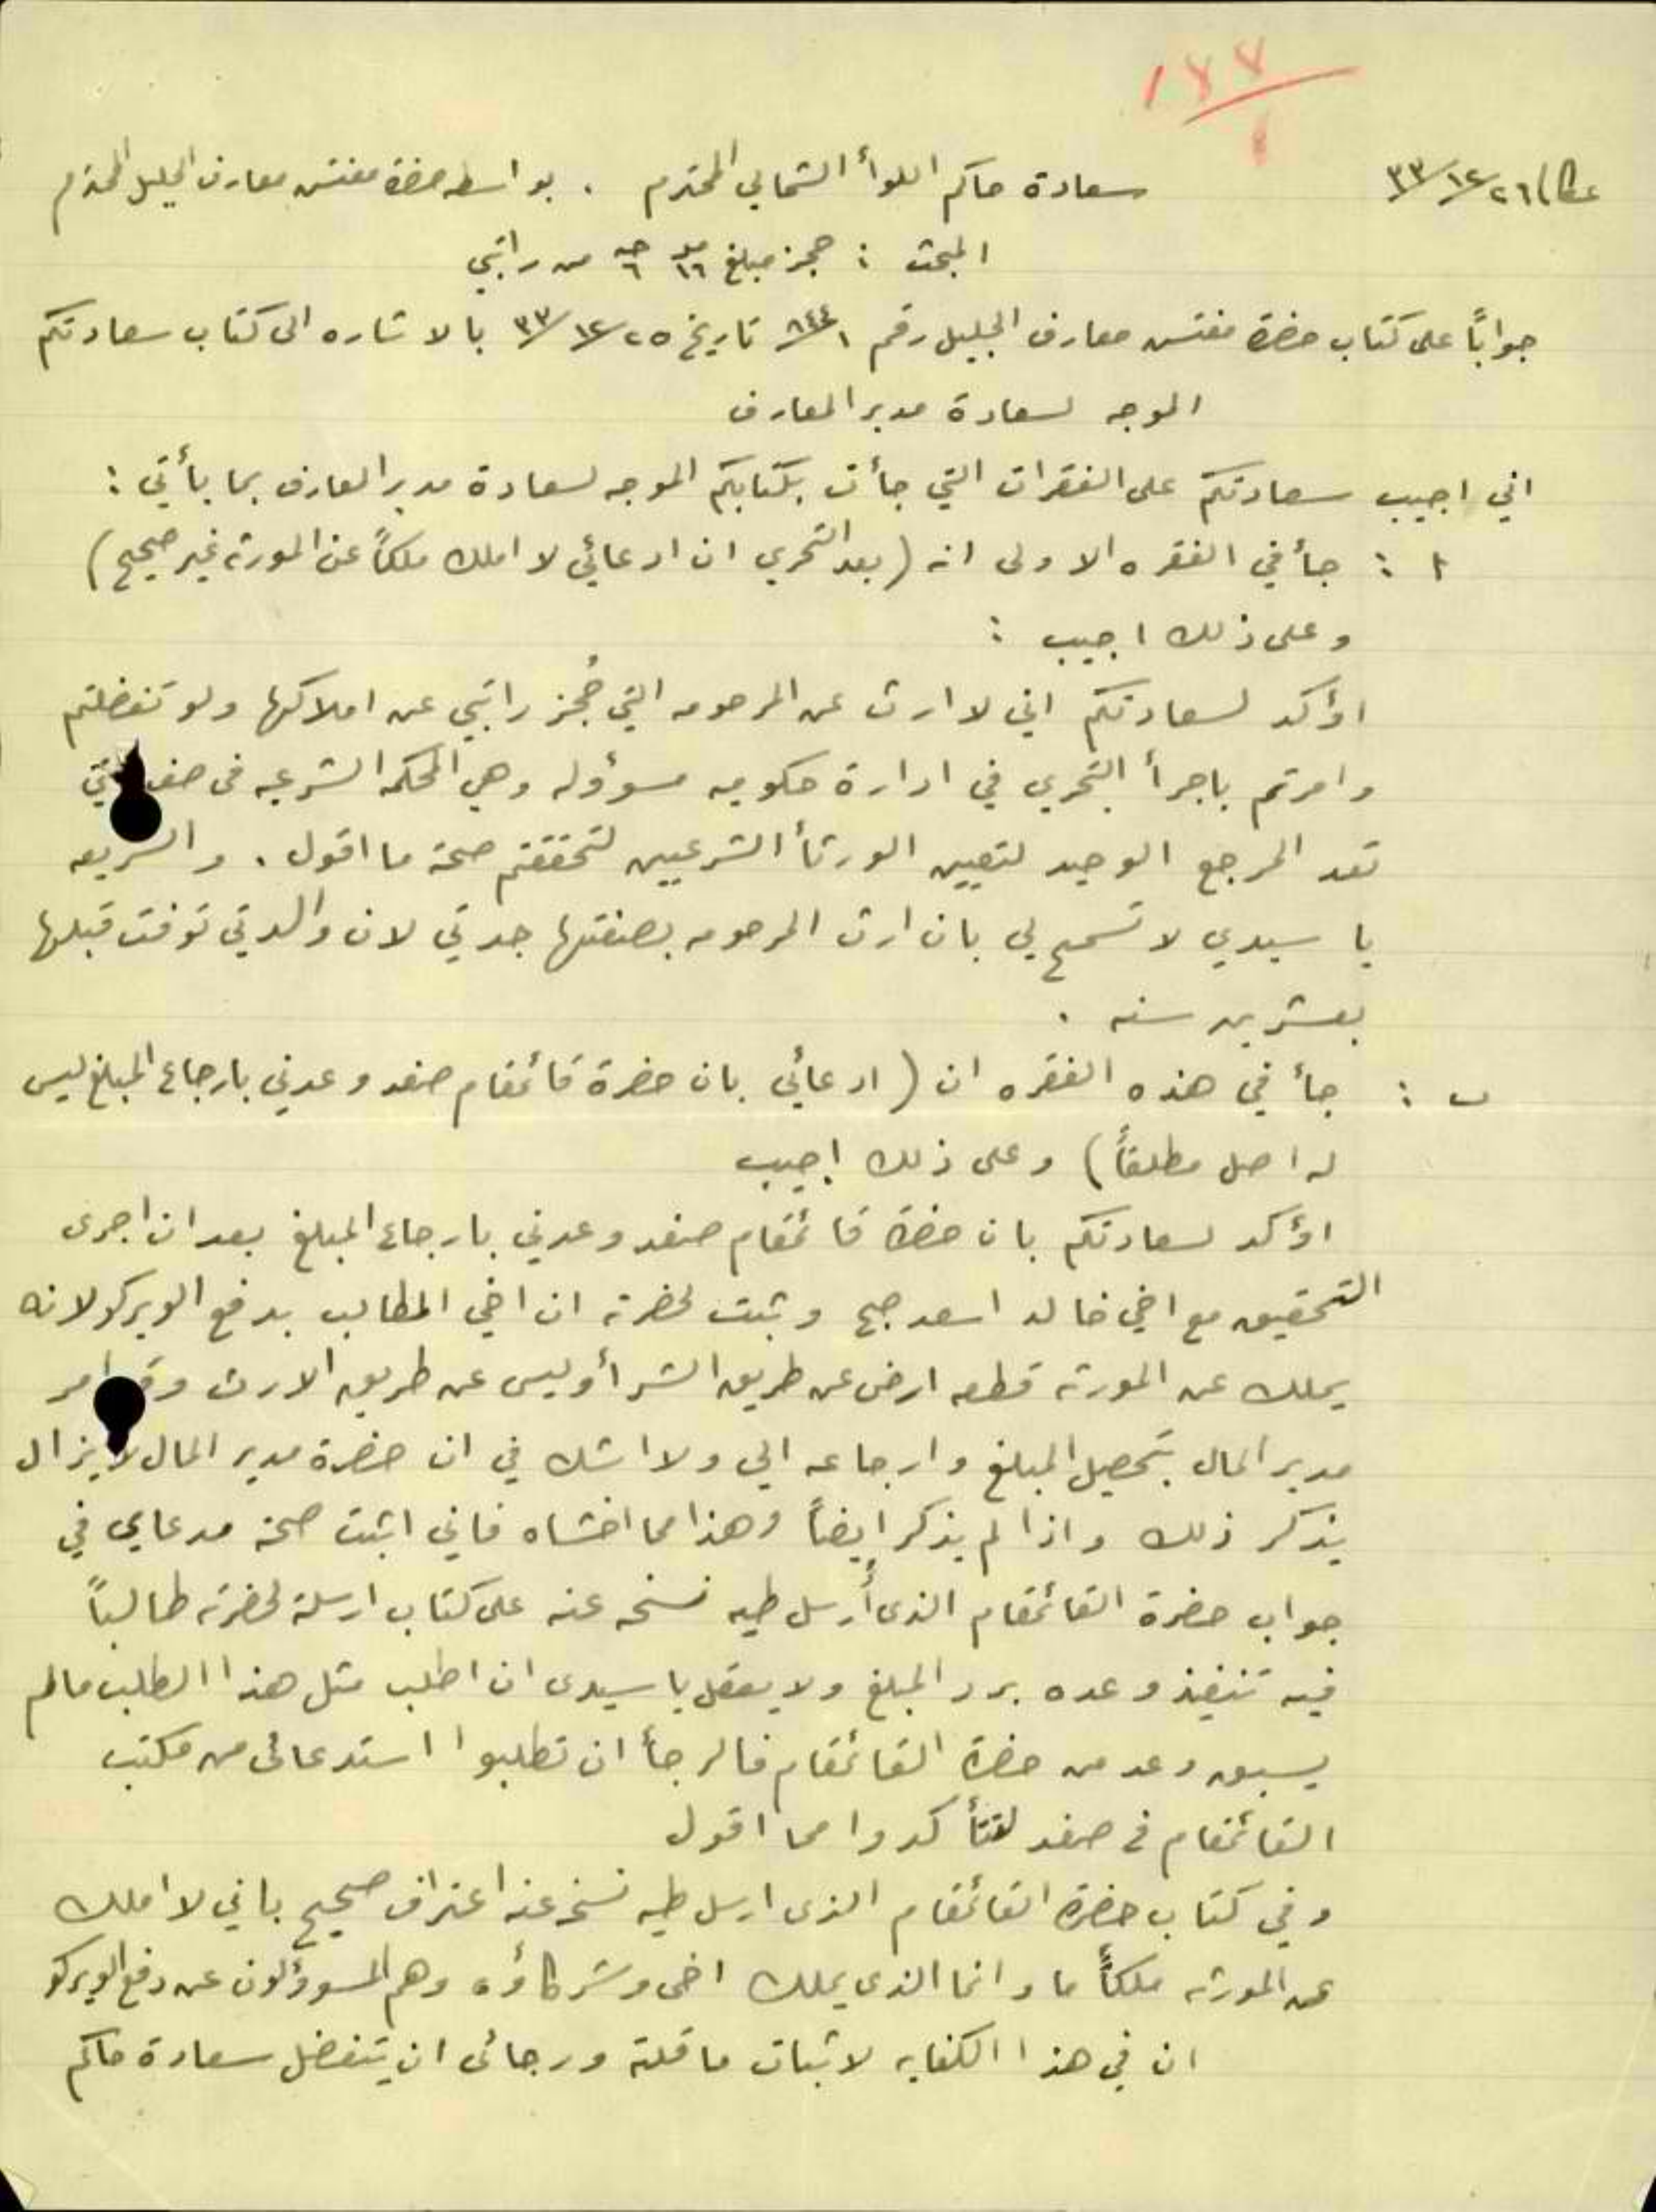 ١٧٧
عكا ٢٦/١٢/٣٣
سعادة حاكم اللوأ الشمالي المحترم . بواسطه حضرة مفتش معارف الجليل المحترم
المبحث : حجز مبلغ من راتبي
جواباً على كتاب حضرة مفتش معارف الجليل رقم ٨٤٤/١ تاريخ ٢٥/١٢/٣٣ بالاشاره الى كتاب سعادتكم
الموجه لسعادة مدير المعارف
اني اجيب سعادتكم على الفقرات التي جأت بكتابكم الموجه لسعادة مدير المعارف بما يأتي :
١ : جأ في الفقره الاولى انه (بعد التحري ان ادعائي لا املك ملكاً عن المورثه غير صحيح)
وعلى ذلك اجيب :
اؤكد لسعادتكم اني لا ارث عن المرحومه التي حُجز راتبي عن املاكها ولو تفضلتم
وامرتم باجرأ التحري في ادارة حكوميه مسؤوله وهي المحكمه الشرعيه في صفد
تعد المرجع الوحيد لتعيين الورثأ الشرعيين لتحققتم صحة ما اقول . والشريعه
يا سيدي لا تسمح لي بان ارث المرحومه بصفتها جدتي لان والدتي توفت قبلها
بعشرين سنه .
ب : جأ في هذه الفقره ان (ادعائي بان حضرة قائمقام صفد وعدني بارجاع المبلغ ليس
له اصل مطلقاً) وعلى ذلك اجيب
اؤكد لسعادتكم بان حضرة قائمقام صفد وعدني بارجاع المبلغ بعد ان اجرى
التحقيق مع اخي خالد اسعد صبح وثبت لحضرته ان اخي المطالب بدفع الويركو لانه
يملك عن المورثه قطعه ارض عن طريق الشرأ وليس عن طريق الارث وقد امر
مدير المال بتحصيل المبلغ وارجاعه الي ولا اشك في ان حضرة مدير المال لا يزال
يذكر ذلك واذا لم يذكر ايضاً وهذا مما اخشاه فاني اثبت صحة مدعاي في
جواب حضرة القائمقام الذى أُرسل طيه نسخه عنه على كتاب ارسلته لحضرته طالباً
فيه تنفيذ وعده برد المبلغ ولا يعقل يا سيدى ان اطلب مثل هذا الطلب مالم
يسبق وعد من حضرة القائمقام فالرجأ ان تطلبوا استدعائى من مكتب
القائمقام في صفد لتتأكدوا مما اقول
وفي كتاب حضرة القائمقام الذى ارسل طيه نسخه عنه اعتراف صحيح باني لا املك
عن المورثه ملكاً ما وانما الذي يملك اخى وشركاؤه وهم المسوؤلون عن دفع الويركو
ان في هذا الكفايه لاثبات ما قلته ورجائى ان يتفضل سعادة حاكم